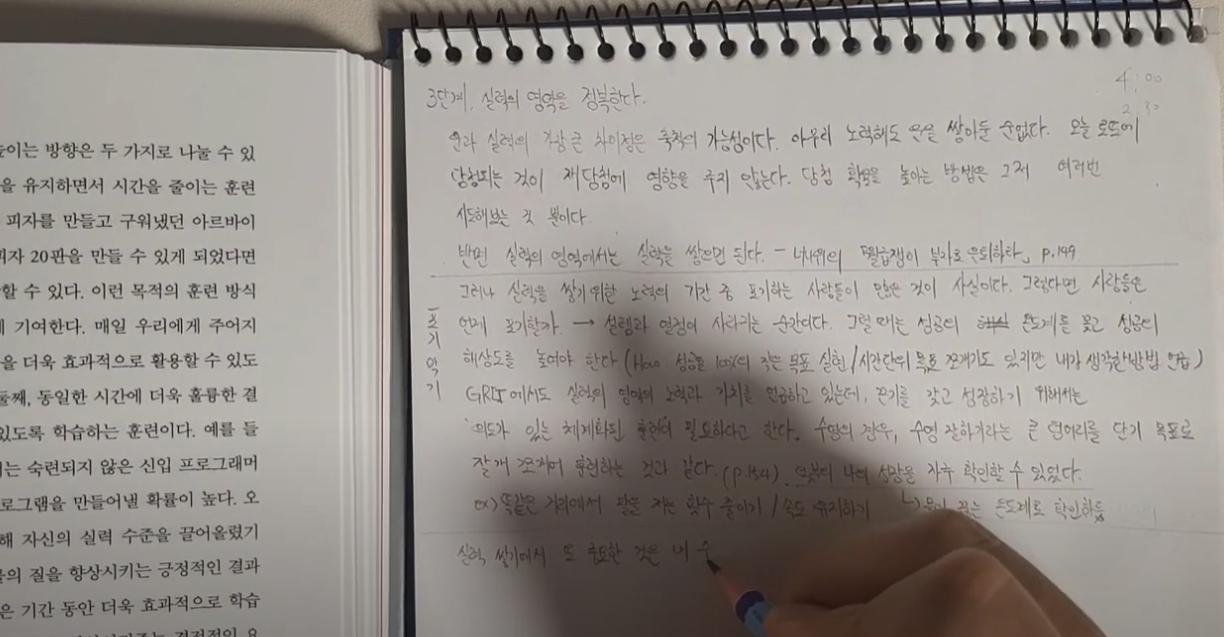 들이는 방향은 두 가지로 나눌 수 있
을 유지하면서 시간을 줄이는 훈련
피자를 만들고 구워냈던 아르바이
피자 20판을 만들 수 있게 되었다면
할 수 있다. 이런 목적의 훈련 방식
에 기여한다. 매일 우리에게 주어지
을 더욱 효과적으로 활용할 수 있도
둘째, 동일한 시간에 더욱 훌륭한 결
있도록 학습하는 훈련이다. 예를 들
서는 숙련되지 않은 신입 프로그래머
로그램을 만들어낼 확률이 높다. 오
해 자신의 실력 수준을 끌어올렸기
물의 질을 향상시키는 긍정적인 결과
은 기간 동안 더욱 효과적으로 학습
4:00
2:30
3단계. 실력의 영역을 정복한다.
운과 실력의 가장 큰 차이점은 축적의 가능성이다. 아무리 노력해도 운을 쌓아둘 순 없다. 오늘 로또에
당첨되는 것이 재당첨에 영향을 주지 않는다. 당첨 확률을 높이는 방법은 그저 여러번
시도해보는 것 뿐이다.
반면 실력의 영역에서는 실력을 쌓으면 된다. - 너나위의 『월급쟁이 부자로 은퇴하라』 p.199
그러나 실력을 쌓기 위한 노력의 기간 중 포기하는 사람들이 많은 것이 사실이다. 그렇다면 사람들은
언제 포기할까. → 설렘과 열정이 사라지는 순간이다. 그럴 때는 성공의 온도계를 꽂고 성공의
해상도를 높여야 한다 (How 성공률 100%의 작은 목표 실현/시간단위 목표 쪼개기도 있지만 내가 생각한 방법)
포기악기
GRIT에서도 실력의 영역의 노력과 가치를 언급하고 있는데, 끈기를 갖고 성장하기 위해서는
'의도가 있는 체계화된 훈련'이 필요하다고 한다. 수영의 경우, 수영 잘하기라는 큰 덩어리를 단기 목표로
잘게 쪼개어 훈련하는 것과 같다. (p.184). 나의 성장을 자주 확인할 수 있었다.
ex) 똑같은 거리에서 팔을 젓는 횟수 줄이기 / 속도 유지하기 꽂는 온도계로 확인하듯
실력 쌓기에서 또 중요한 것은 내